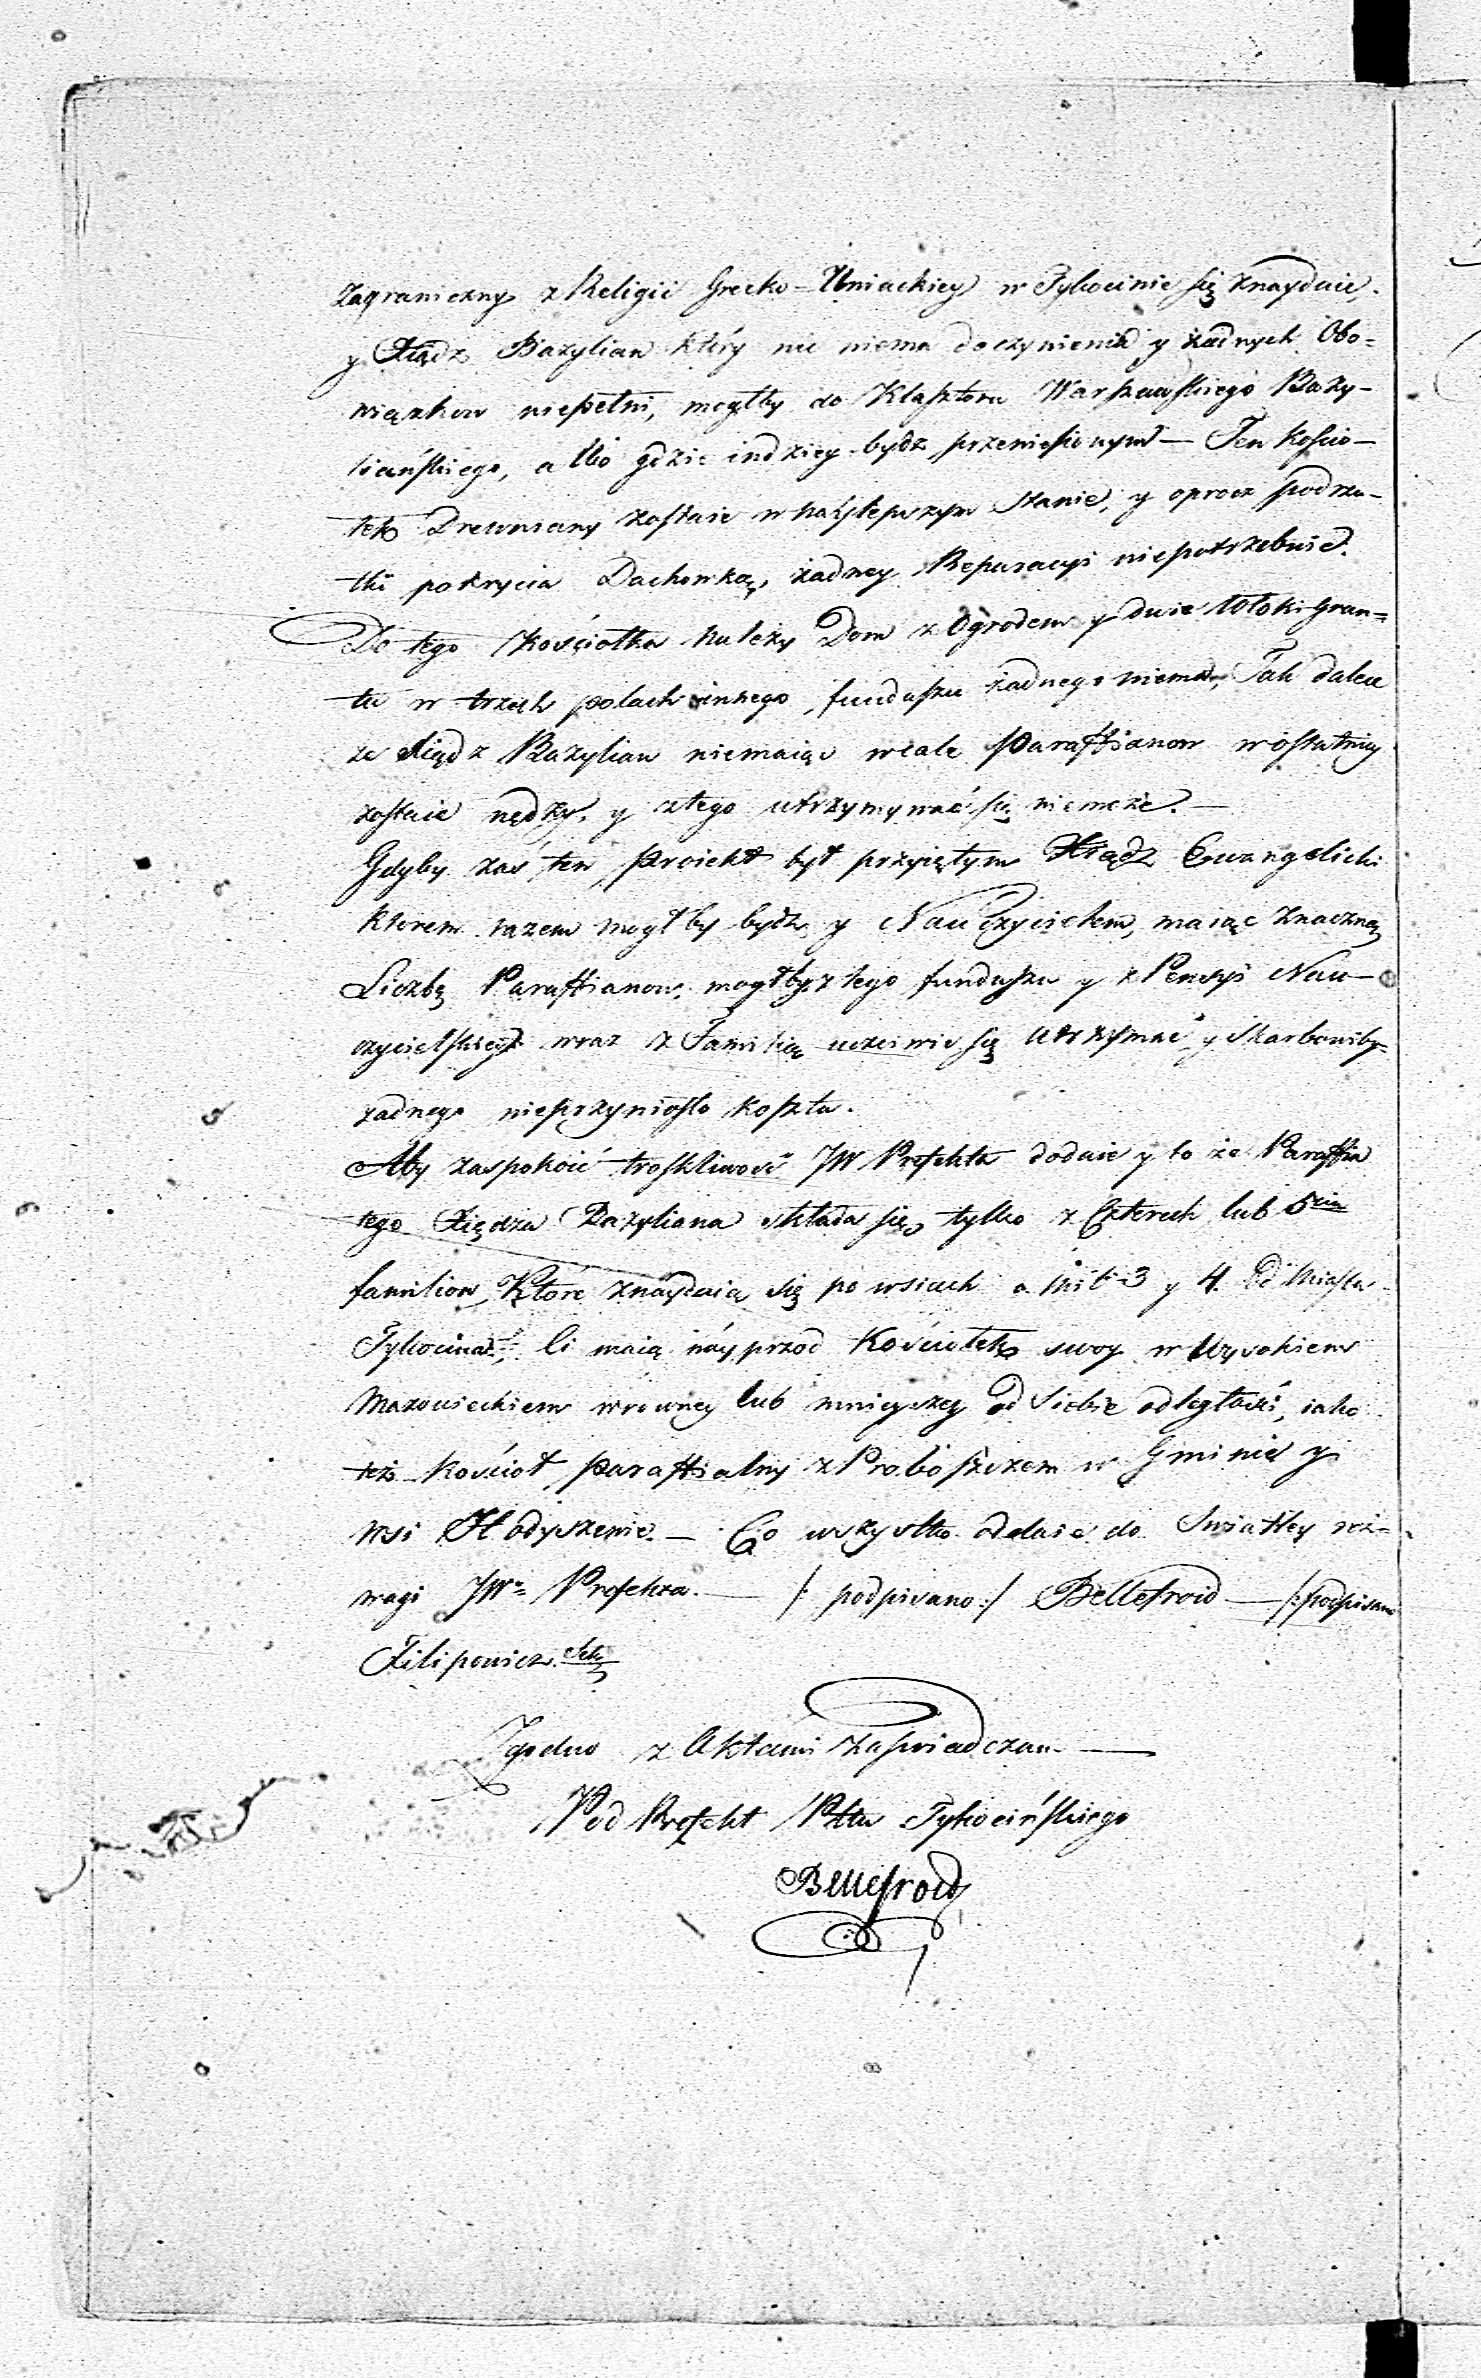 zagraniczny z Religii Grecko-Uniackiey w Tykocinie się znayduie,
y Xiądz Bazylian który nic niema doczynienia y żadnych Obo=
wiązkow niepełni, mogłby do Klasztoru Warszawskiego Bazy-
liańskiego, albo gdzie indziey bydź przeniesionym — Ten kościo-
łek Drewniany zostaie w naylepszym stanie, y oprocz podrzu-
tki pokrycia Dachowką, żadney Reparacyi niepotrzebuie.
Do tego kościołka należy Dom z Ogrodem y dwie Włoki Grun=
tu w trzech polach innego funduszu żadnego niema, Tak dalece
że Xiądz Bazylian niemaiąc wcale Paraffianow w ostatniey
zostaie nędzy, y ztego utrzymywać się niemoże. —
Gdyby zaś ten Proiekt był przyiętym Xiądz Ewangelicki
ktorem razem mogłby bydź y Nauczycielem, maiąc znaczną
Liczbę Paraffianow, mogłby z tego funduszu y z Pensyi Nau-
czycielskiey wraz z Familią uczciwie się utrzymać y Skarbowiby
żadnego nieprzyniosło kosztu.
Aby zaspokoić troskliwość JW Prefekta dodaie y to że Paraffia
tego Xiędza Bazyliana składa się tylko z Czterech lub 5ciu
familiow, Które znayduią się po wsiach o mil 3 y 4 od Miasta
Tykocina, Ci maią nayprzod Kościołek swoy w Wysokiem
Mazowieckiem wrowney lub mnieyszey od siebie odległości, iako
też kościoł paraffialny z Proboszczem w Gminie y
wsi Hodyszewie. — Co wszystko oddaie do Swiatłey roz=
wagi JWo Prefekta. — /: podpisano :/ Bellefroid — /: podpisano
Filipowicz Sek
Zgodno z Aktami zaświadczam —
Pod Prefekt Pttu Tykocińskiego
Bellefroid